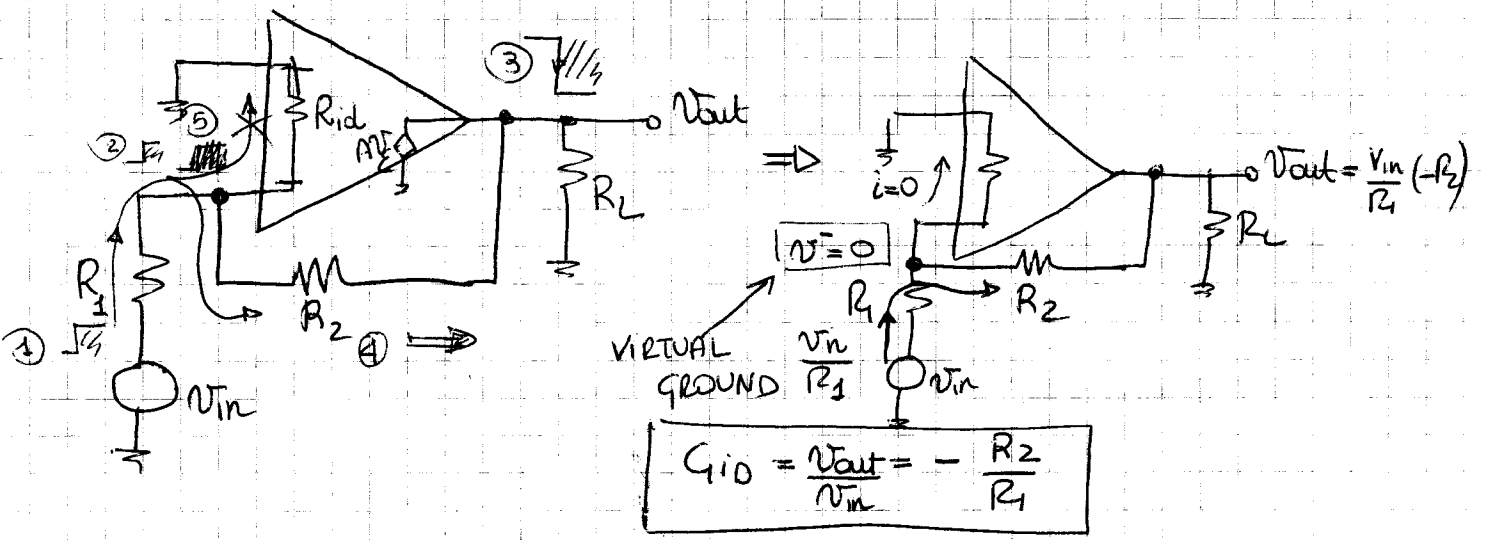 ③
Vout
Rid
⑤
②
AV
RL
R1
R2
④
①
Vin
i=0
Vout = Vin/R1 (-R2)
RL
v⁻=0
R1
R2
VIRTUAL
GROUND
Vin/R1
Vin
GID = Vout/Vin = - R2/R1